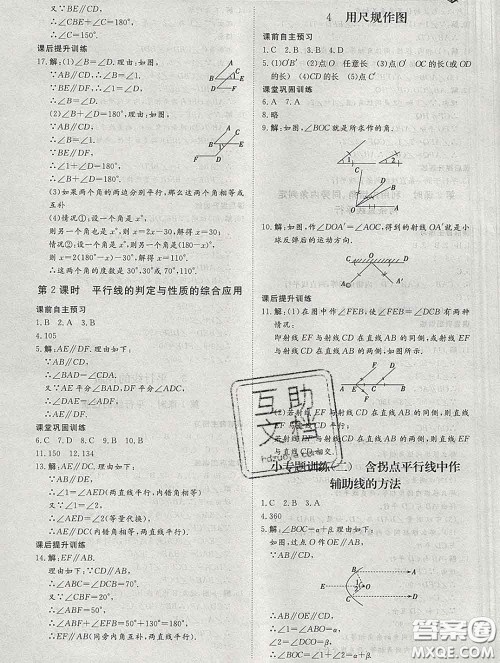 又∵BC∥DE,
∴∠C+∠E=180°,
∴∠B+∠E=180°.
课后提升训练
17.解:(1)∠B=∠D.
∵AB∥CD,
∴∠B=∠1.
又∵BE∥DF,
∴∠1=∠D,∴∠B=∠D.
(2)∠B+∠D=180°.
∵AB∥CD,
∴∠B=∠2.
又∵BE∥DF,
∴∠2+∠D=180°,
∴∠B+∠D=180°.
(3)如果两个角的两边分别平行,那么这两个角相等或互补
(4)情况①:设一个角是x°,
则另一个角是(2x-30)°.
由题意得x=2x-30,解得x=30.
情况②:设一个角为x°,
则另外一个角也可为(180-x)°,
则180-x=2x-30,解得x=70.
∴这两个角的度数为30°,30°或70°,110°.
第2课时 平行线的判定与性质的综合应用
课前自主预习
1.B 2.A 3.B
4.105
5.解:AE∥DF.理由如下:
∵AB∥CD,
∴∠BAD=∠ADC.
∵AE,DF分别平分∠BAD,∠ADC,
∴∠DAE=∠ADF,
∴AE∥DF.
课堂巩固训练
6.C 7.D 8.C 9.B 10.B
11.150 12.134
13.解:AE∥DC.理由如下:
∵AB∥DE,
∴∠1=∠AED(两直线平行,内错角相等)
又∵∠1=∠2,
∴∠2=∠AED(等量代换),
∴AE∥DC(内错角相等,两直线平行).
课后提升训练
14.解:EF∥AB.理由如下:
∵AB∥CD,
∴∠ABC=∠DCB=70°.
又∵∠CBF=20°,
∴∠ABF=50°.
∵∠EFB=130°,
∴∠ABF+∠EFB=180°,
∴EF∥AB(同旁内角互补,两直线平行).
4 用尺规作图
课前自主预习
1.C 2.B 3.B 4.B
5.(1)O'A' (2)点O 任意长 (3)点O' OC的长(或OD的长) (4)CD的长 (5)点C'
课堂巩固训练
6.A 7.A
8.略
9.解:如图,∠BOC就是所求作的角.
10.解:如图,作∠DOA'=∠COA,射线OA'就是小球反弹后的运动方向.
课后提升训练
11.解:(1)在图上作∠BEF=∠ACD.理由如下:
∵∠BEF=∠ACD,
∴EF∥CD(同位角相等,两直线平行),
即射线EF与射线CD在直线AB的同侧.
当射线EF与射线CD在直线AB的两侧,如图所示:
(2)若射线EF与射线CD在直线AB的同侧,则直线EF与直线CD平行;若射线EF与射线CD在直线AB的两侧,则直线EF与直线CD相交.
小专题训练(二) 含拐点平行线中作辅助线的方法
1.C 2.B 3.A
4.360
5.解:∠BOC=α+β.理由如下:
如图,过点O作OE∥AB,
∴∠1=α.
∵AB∥CD,
∴OE∥CD,
∴∠2=β,
∴∠1+∠2=α+β,
∴∠BOC=α+β.
互助文档
hdzuoye.com
答案圈
MXQE.COM